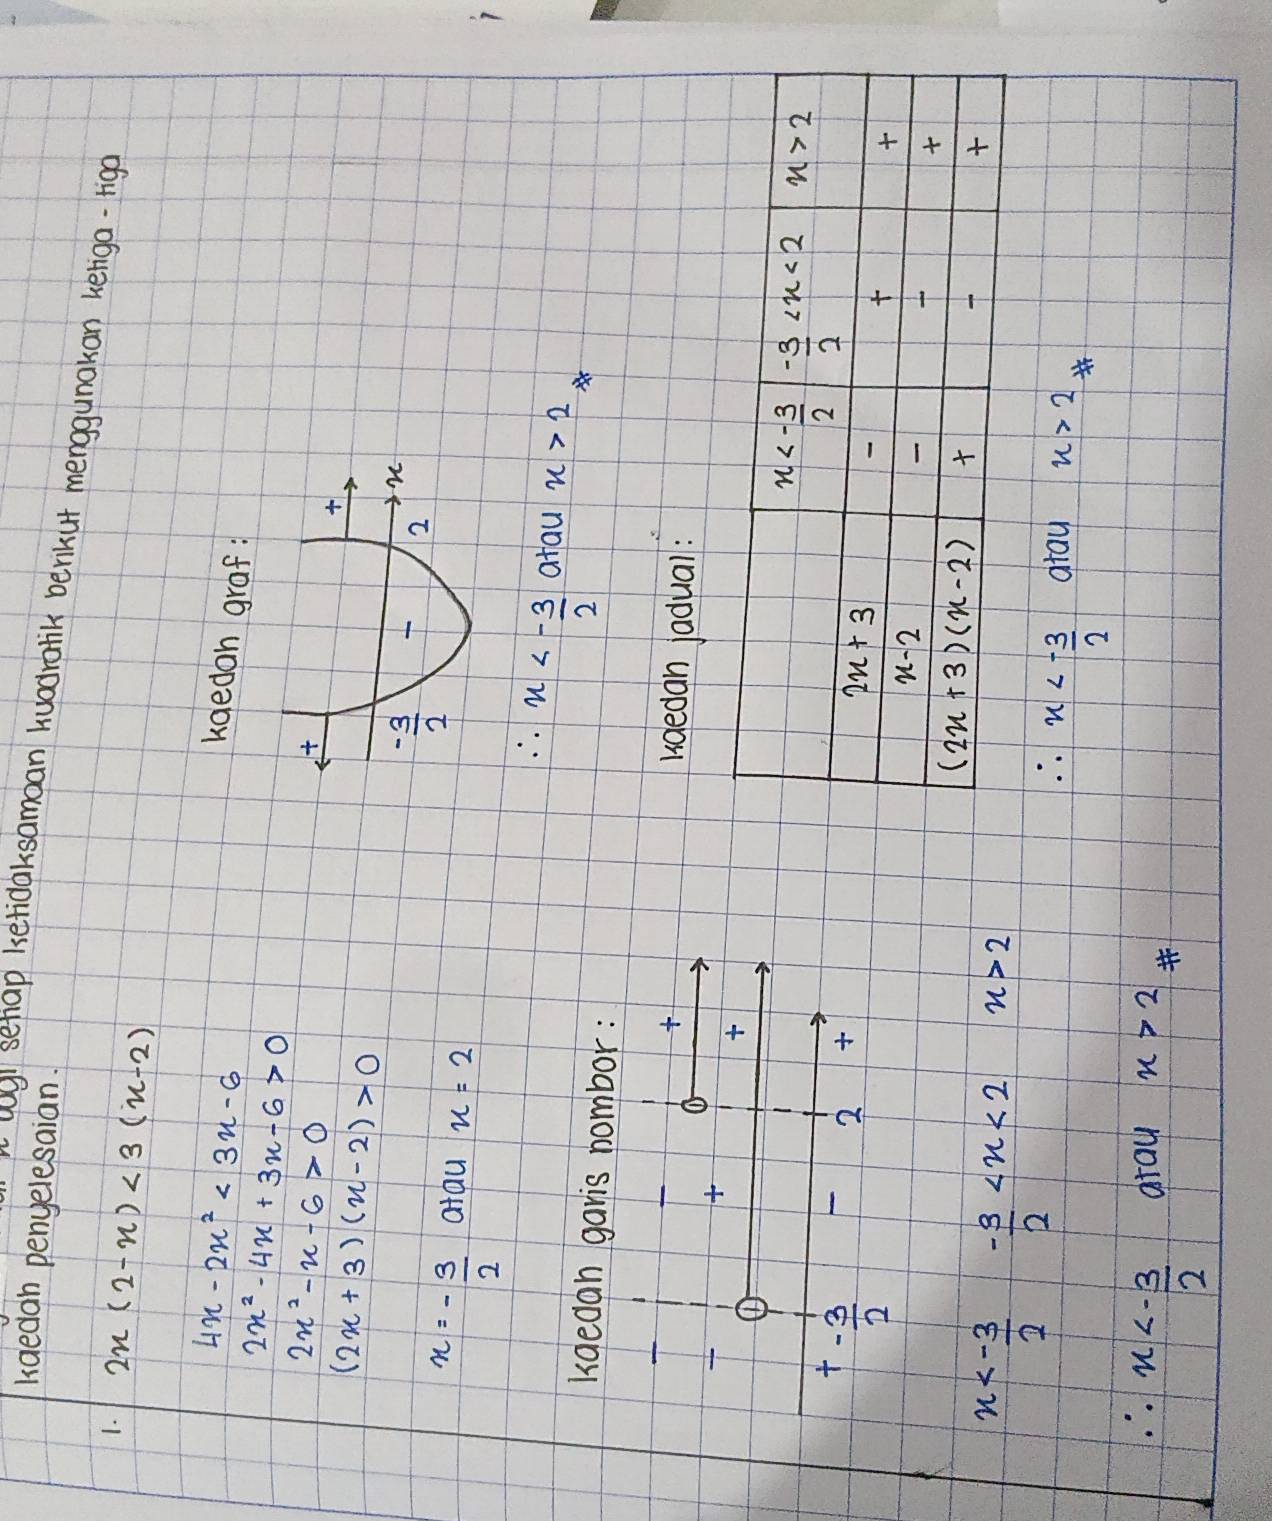 bagi setiap ketidaksamaan kuadratik berikut menggunakan ketiga-tiga
kaedah penyelesaian.
1. 2x(2-x)<3(x-2)
4x-2x²<3x-6
2x²-4x+3x-6>0
2x²-x-6>0
(2x+3)(x-2)>0
x=-3/2 atau x=2
kaedah garis nombor:
- - +
- + +
+ -3/2 - 2 +
x<-3/2 -3/2<x<2 x>2
∴ x<-3/2 atau x>2 #
kaedah graf:
+ +
-3/2 - 2 x
∴ x<-3/2 atau x>2 #
kaedah jadual:
x<-3/2 -3/2<x<2 x>2
2x+3 - + +
x-2 - - +
(2x+3)(x-2) + - +
∴ x<-3/2 atau x>2 #